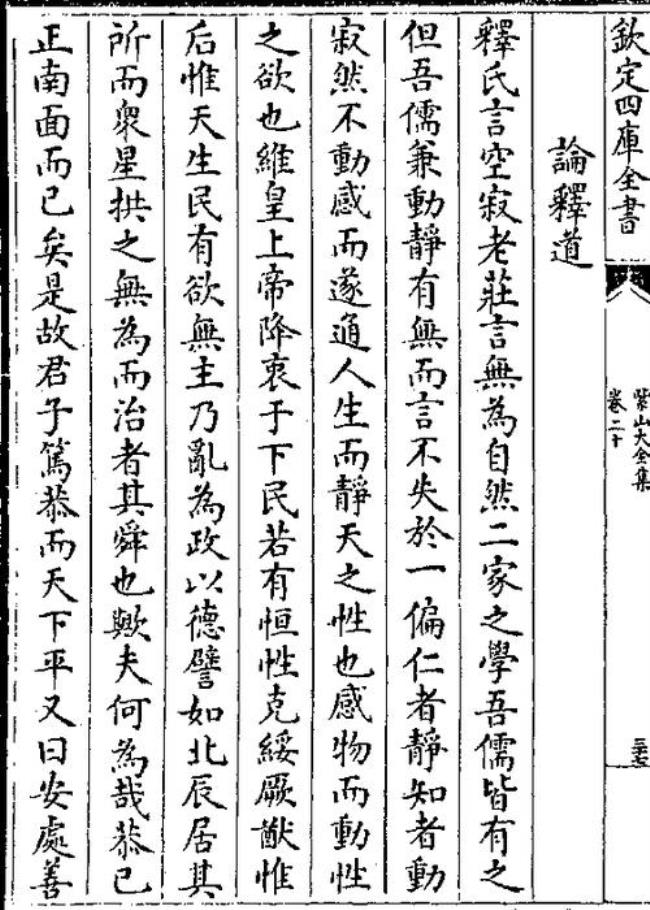 欽定四庫全書
紫山大全集
卷二十
三十七
論釋道
釋氏言空寂老莊言無為自然二家之學吾儒皆有之
但吾儒兼動靜有無而言不失於一偏仁者靜知者動
寂然不動感而遂通人生而靜天之性也感物而動性
之欲也維皇上帝降衷于下民若有恒性克綏厥猷惟
后惟天生民有欲無主乃亂為政以德譬如北辰居其
所而衆星拱之無為而治者其舜也歟夫何為哉恭已
正南面而已矣是故君子篤恭而天下平又曰安處善